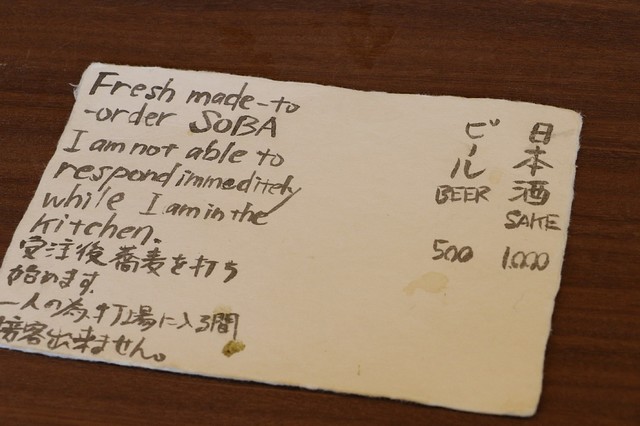 Fresh made-to
-order SOBA
I am not able to
respond immeditely
while I am in the
kitchen.
受注後蕎麦を打ち
始めます。
一人の為、打場に入る間
接客出来ません。
日本酒
SAKE
1.000
ビール
BEER
500